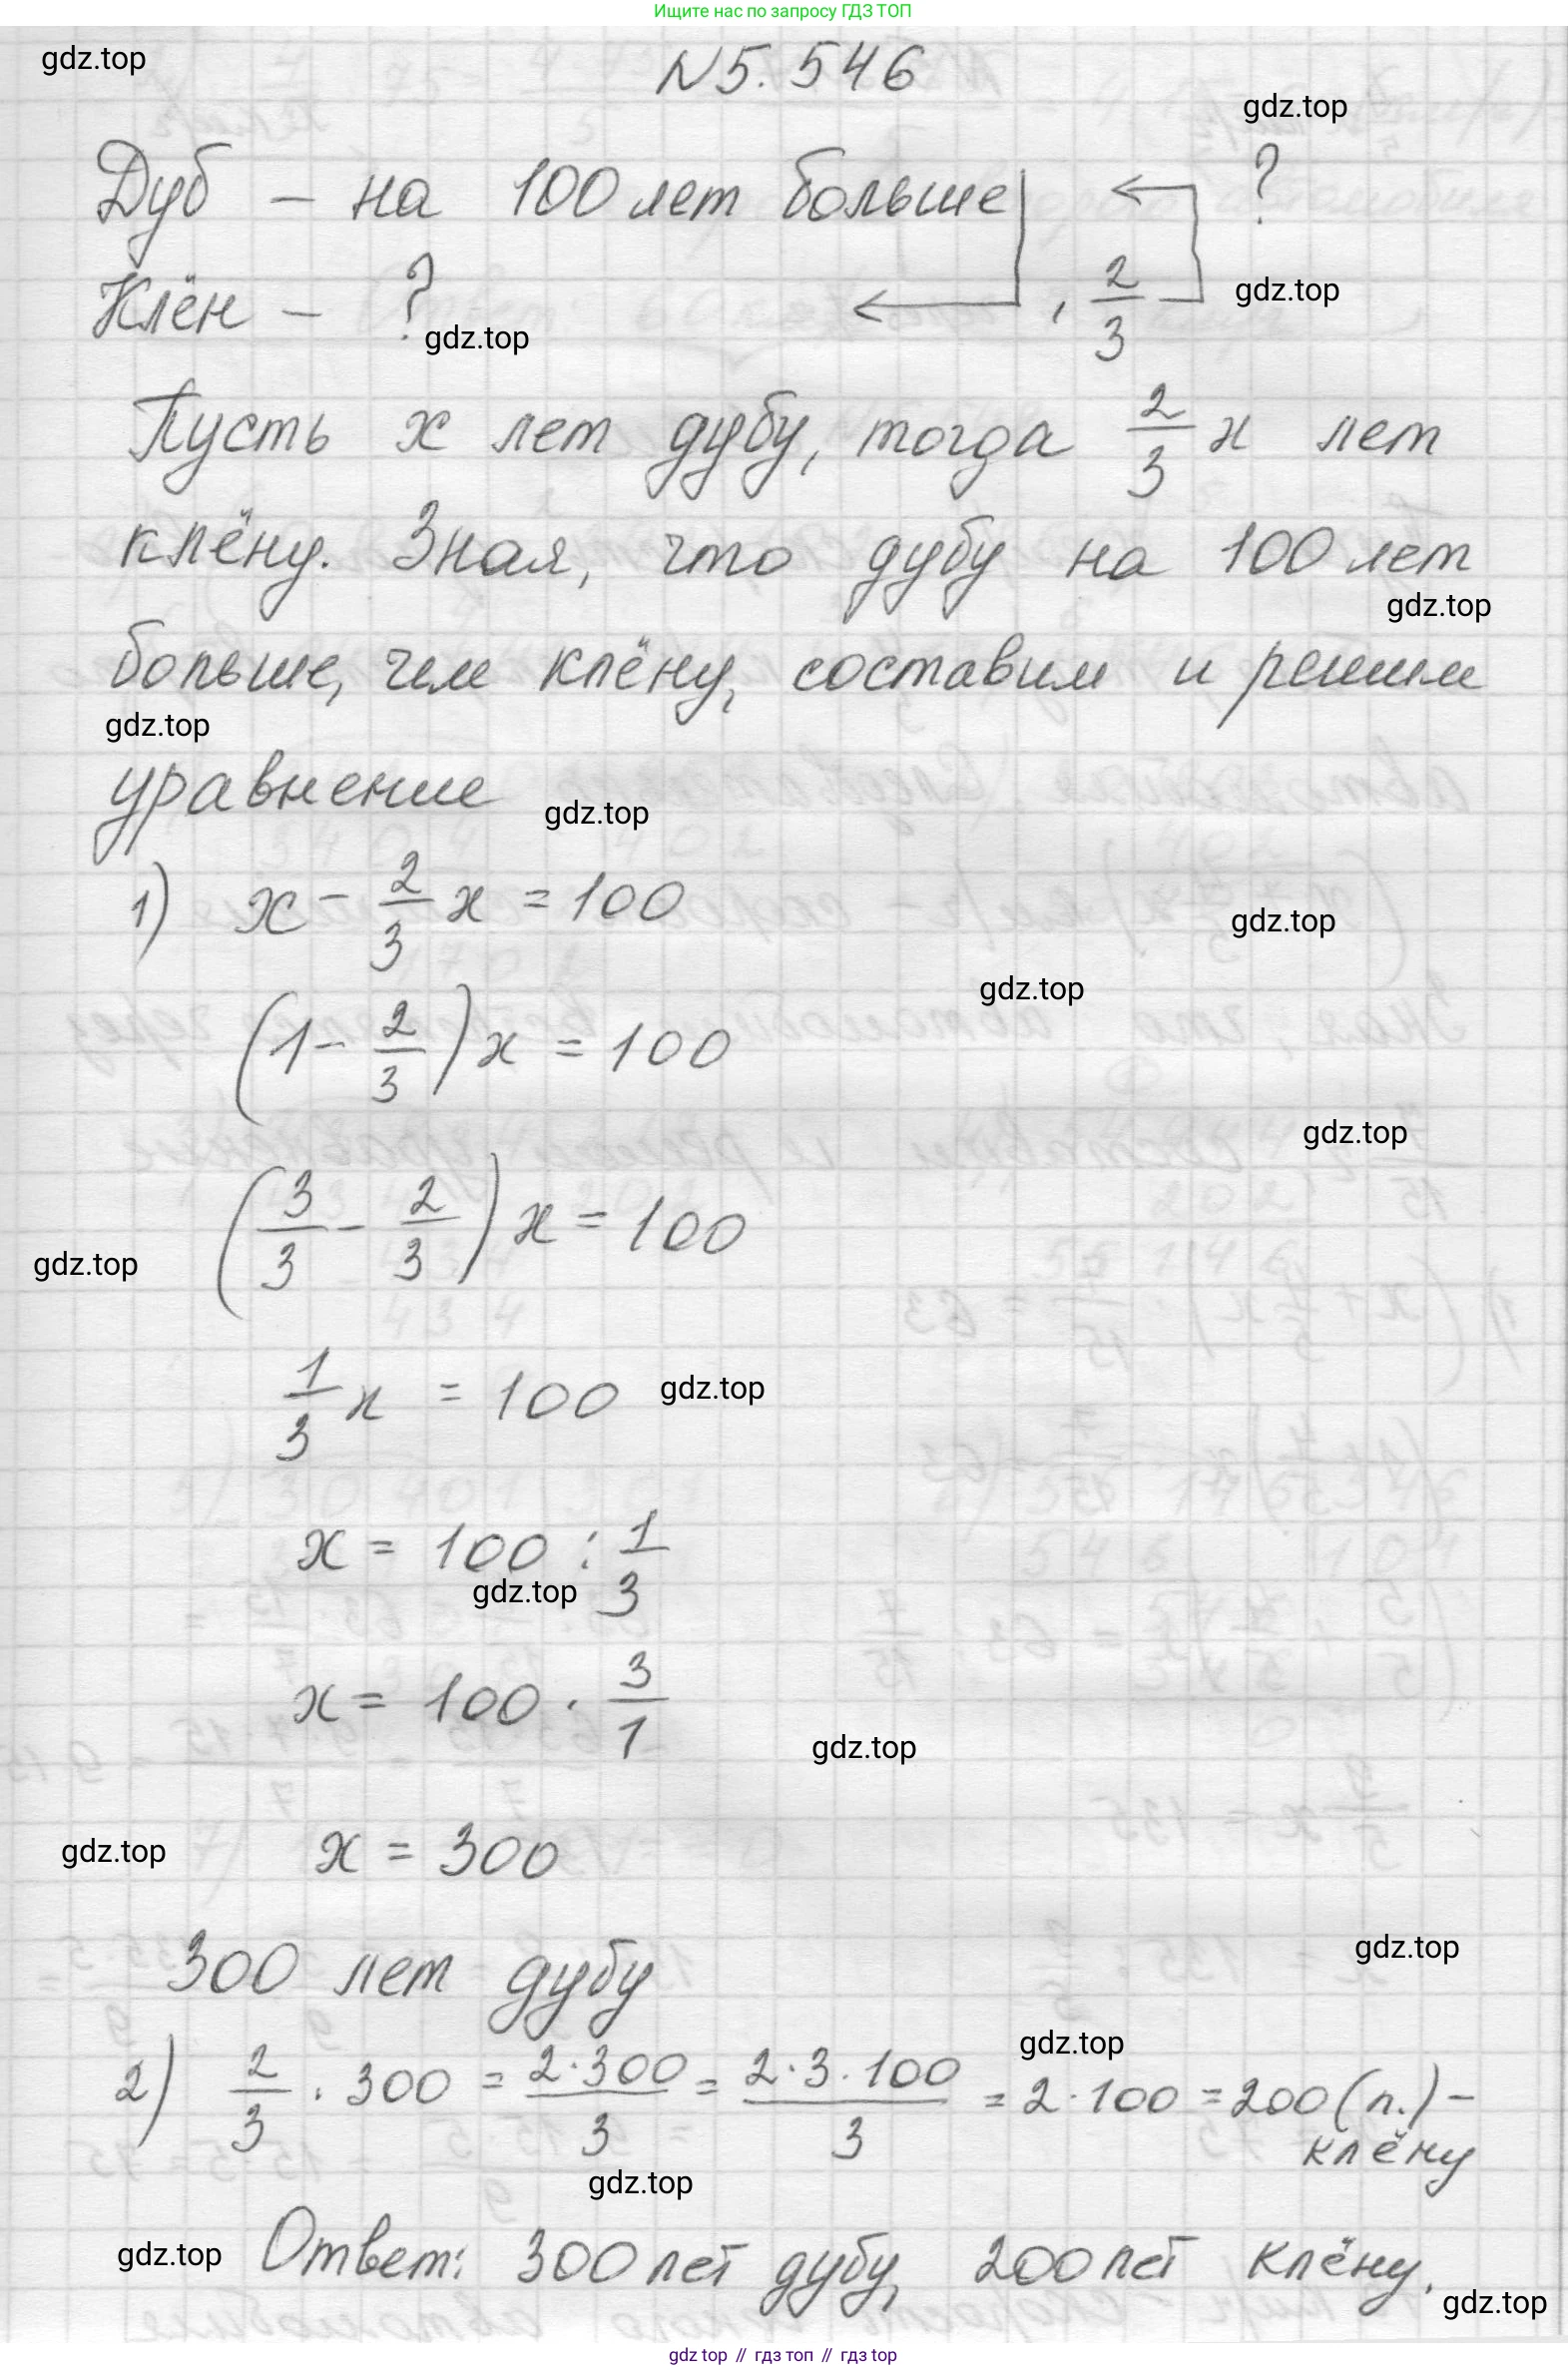 Ищите нас по запросу ГДЗ ТОП
gdz.top
N5.546
gdz.top
Дуб – на 100 лет больше ?
Клён – ? , 2/3
gdz.top
gdz.top
Пусть x лет дубу, тогда 2/3 x лет
клёну. Зная, что дубу на 100 лет
gdz.top
больше, чем клёну, составим и решим
gdz.top
уравнение
gdz.top
1) x - 2/3 x = 100
gdz.top
gdz.top
(1 - 2/3) x = 100
gdz.top
(3/3 - 2/3) x = 100
gdz.top
1/3 x = 100
gdz.top
x = 100 : 1/3
gdz.top
x = 100 · 3/1
gdz.top
x = 300
gdz.top
300 лет дубу
gdz.top
gdz.top
2) 2/3 · 300 = 2·300/3 = 2·3·100/3 = 2·100 = 200 (л.) –
клёну
gdz.top
Ответ: 300 лет дубу, 200 лет клёну.
gdz.top
gdz.top
gdz top // гдз топ // гдз top